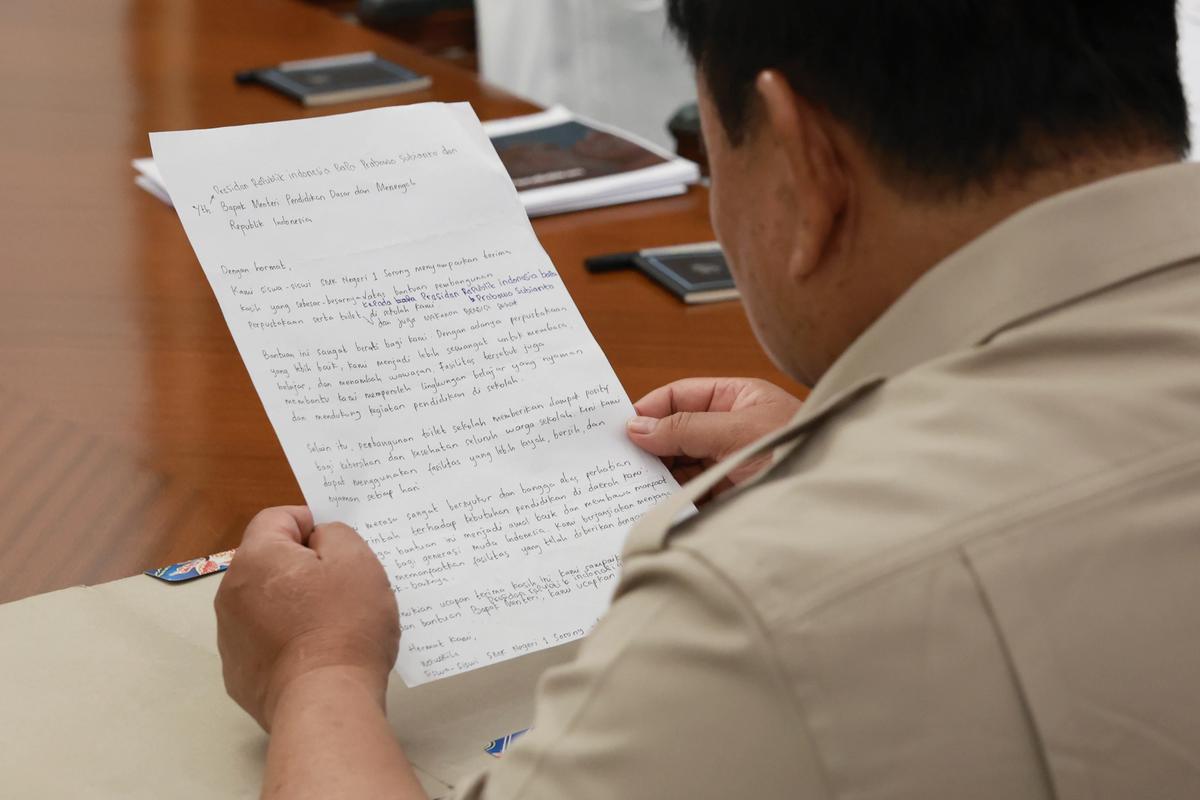 Presiden Republik indonesia BaPa Prabowo Subianto dan
Yth Bapak Menteri Pendidikan Dasar dan Menengah
Republik Indonesia
Dengan hormat,
Kami siswa-siswi SMK Negeri 1 Sorong menyampaikan terima
kasih yang sebesar-besarnya atas bantuan pembangunan
kepada bapa Presidan Republik indonesia bapa
Perpustakaan serta toilet di sekolah kami Prabowo Subianto
dan juga makanan bergizi
Bantuan ini sangat berarti bagi kami. Dengan adanya perpustakaan
yang lebih baik, kami menjadi lebih semangat untuk membaca,
belajar, dan menambah wawasan. Fasilitas tersebut juga
membantu kami memperoleh lingkungan belajar yang nyaman
dan mendukung kegiatan pendidikan di sekolah.
Selain itu, pembangunan toilet sekolah memberikan dampak positif
bagi kebersihan dan kesehatan seluruh warga sekolah. Kini kami
dapat menggunakan fasilitas yang lebih layak, bersih, dan
nyaman setiap hari
merasa sangat bersyukur dan bangga atas perhatian
rintah terhadap kebutuhan pendidikan di daerah kami.
ga bantuan ini menjadi amal baik dan membawa manfaat
bagi generasi muda Indonesia. Kami berjanjiakan menjaga
memanfaatkan fasilitas yang telah diberikan dengan
k-baiknya.
mikian ucapan terima kasih ini kami sampaik
Presidan republik indonesia
dan bantuan Bapak Menteri, kami ucapkan
Hormat Kami,
Siswa-siswi SMK Negeri 1 Sorong